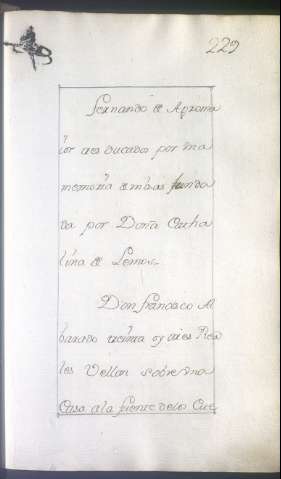 229
fernando de Aprama
ior tres ducados por vna
memoria de misas funda
da por Doña Catha
lina de Lemos
Don francisco Al
barado treinta y tres Rea
les Vellon sobre vna
Casa a la fuente de los Che